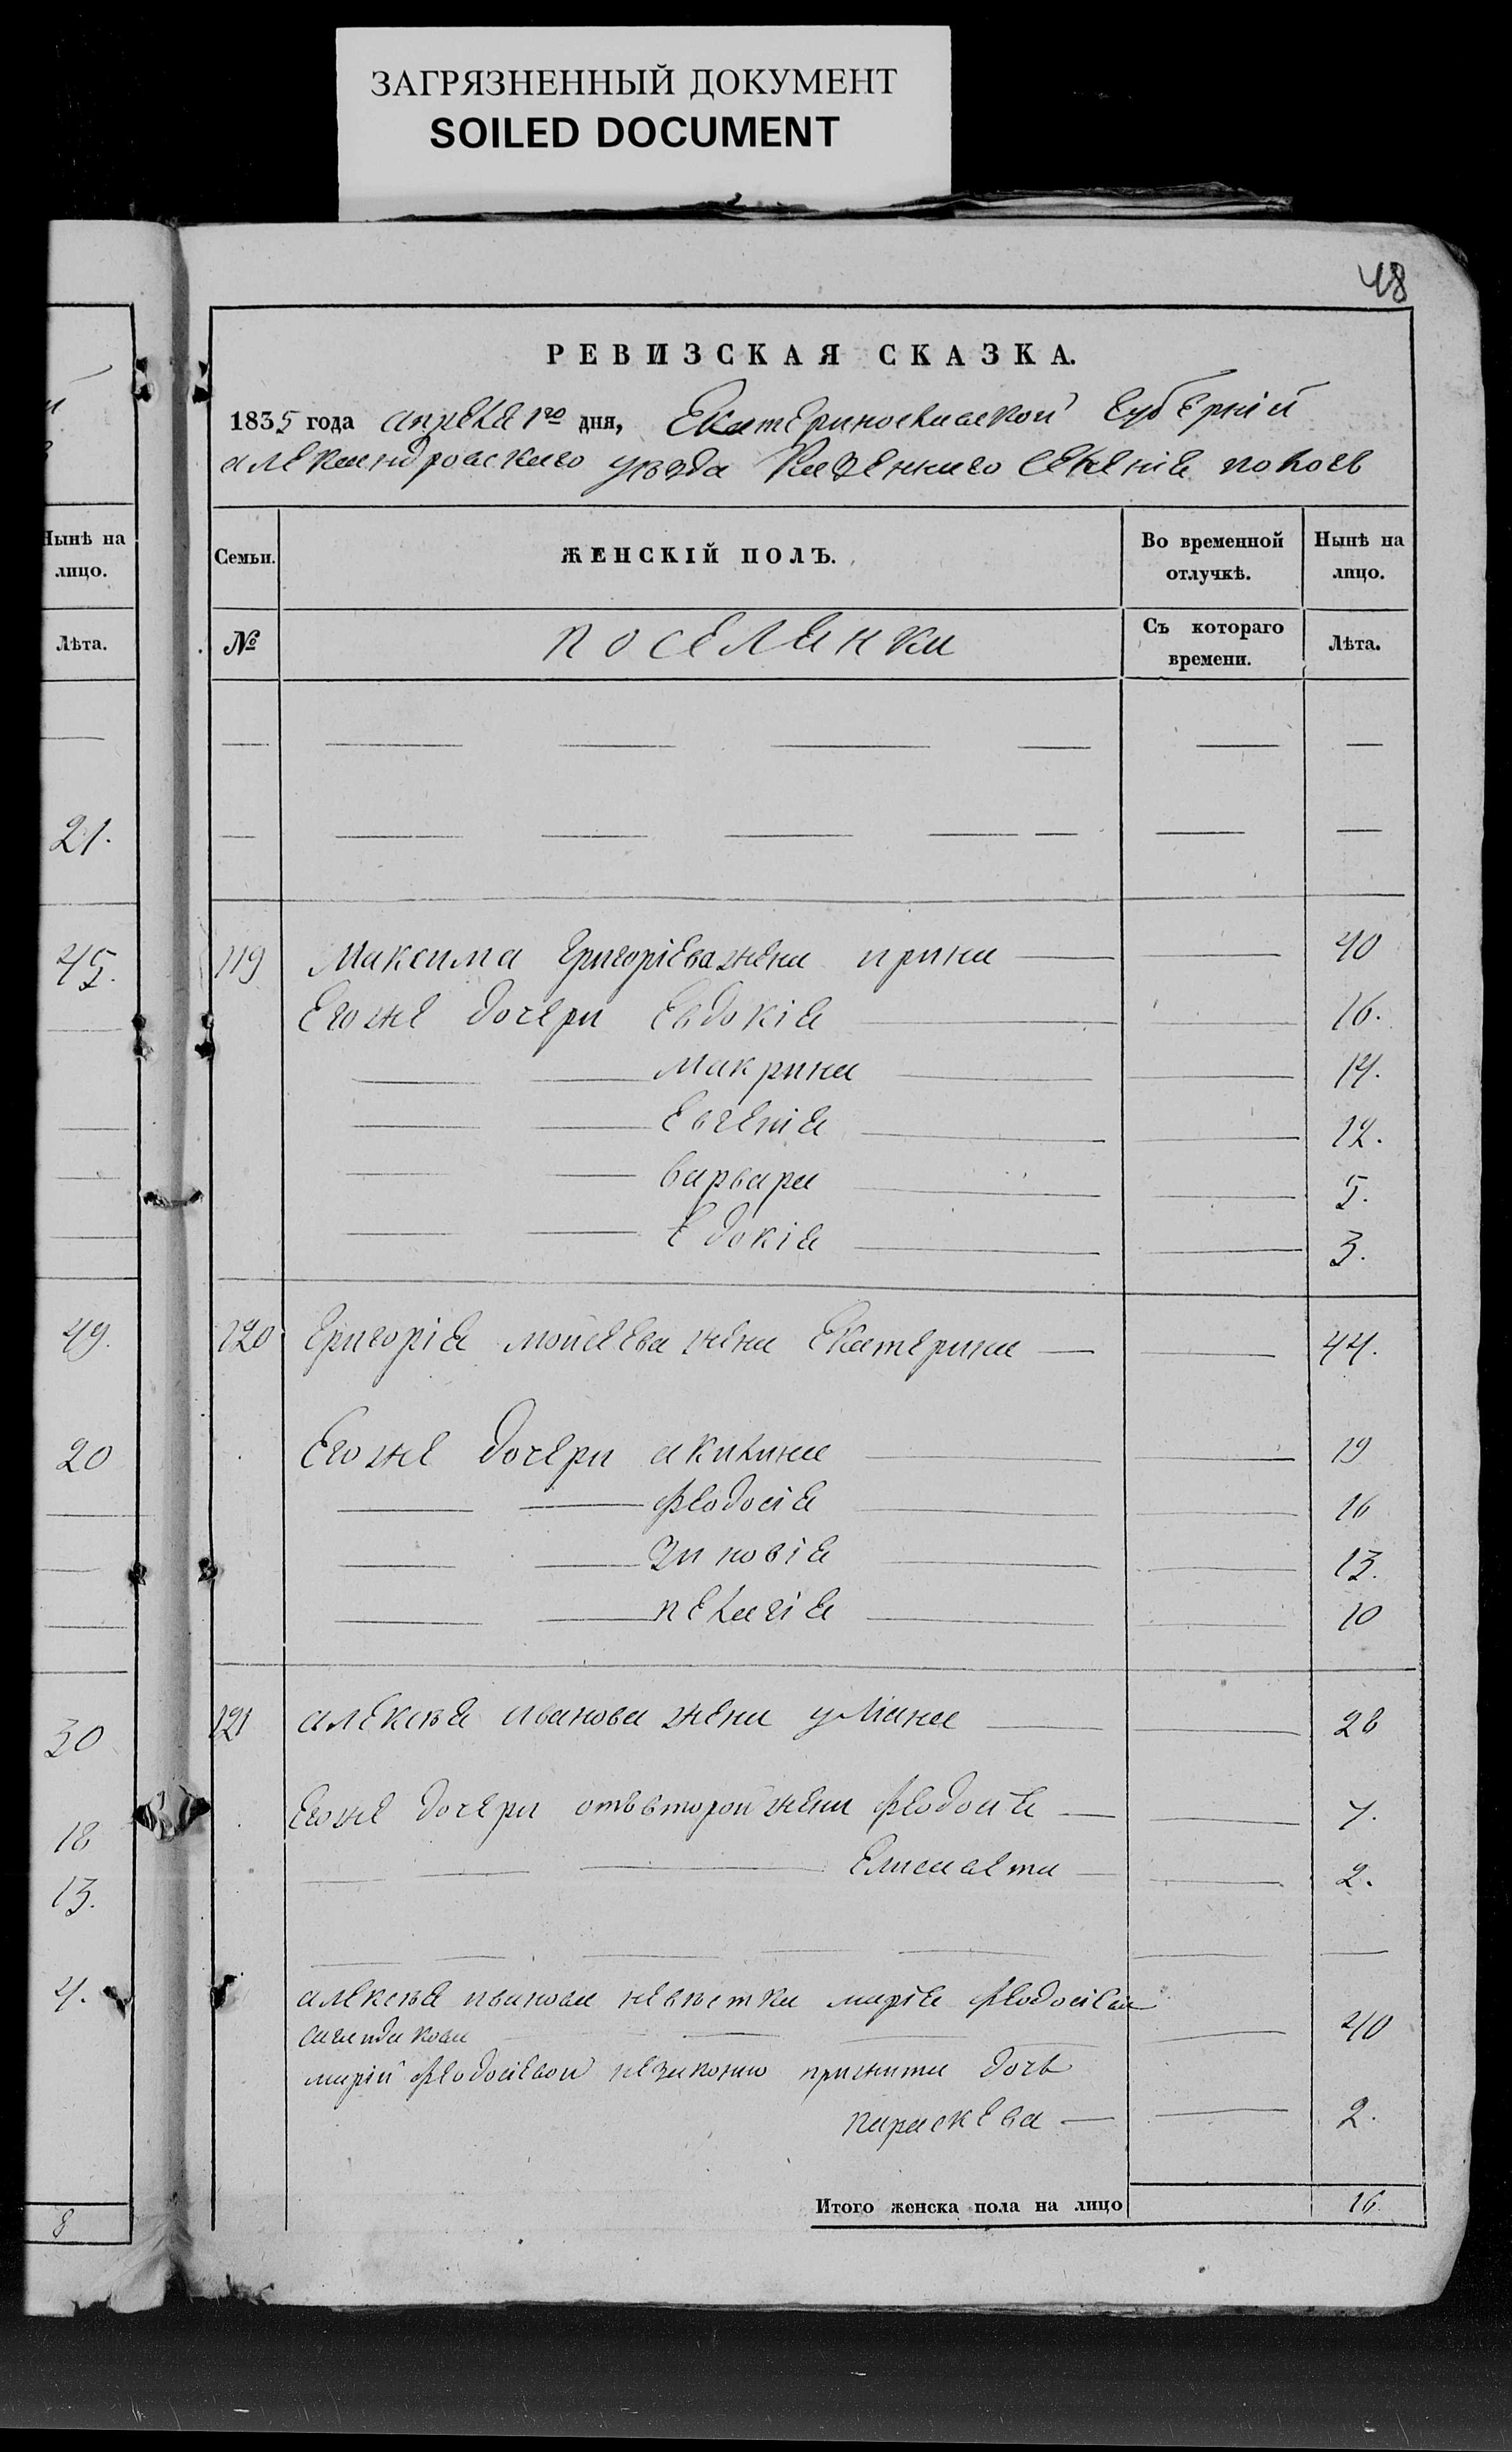 ЗАГРЯЗНЕННЫЙ ДОКУМЕНТ
SOILED DOCUMENT
48
РЕВИЗСКАЯ СКАЗКА.
1835 года апреля 1го дня, Екатеринославской Губернiи
александровскаго уѣзда Казеннаго Селенiя пологъ
Нынѣ на лицо.
Лѣта.
21.
45.
49.
20
30
18
13.
4.
8
Семьи. ЖЕНСКІЙ ПОЛЪ. Во временной отлучкѣ. Нынѣ на лицо.
№ поселянки Съ котораго времени. Лѣта.
119 Максима Григорiева жена ирина 40
Егоже дочери Евдокiя 16.
макрина 14.
Евгенiя 12.
варвара 5.
Едокiя 3.
120 Григорiя мойсеева жена Екатерина 44.
Егоже дочери акилина 19
феодосiя 16
зиновiя 13.
пелагiя 10
121 алексѣя иванова жена улiана 28
Егоже дочери отъ второй жени феодосiя 7.
Елисавета 2.
алексѣя иванова невѣстка марiя феодосiева
40
марiи феодосiевой незаконно прижита дочь
параскева 2.
Итого женска пола на лицо 16